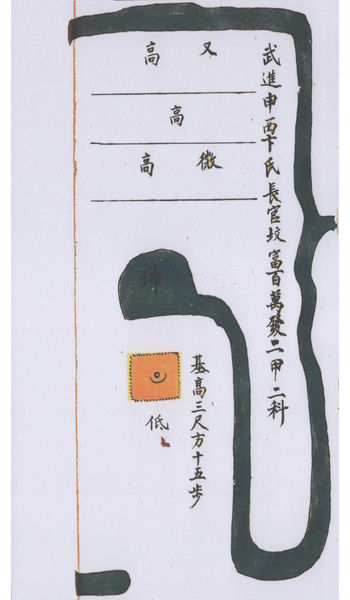 武進申西卞氏長官坟富百萬發二甲二科
又高
高
微高
坤
基高三尺方十五步
低